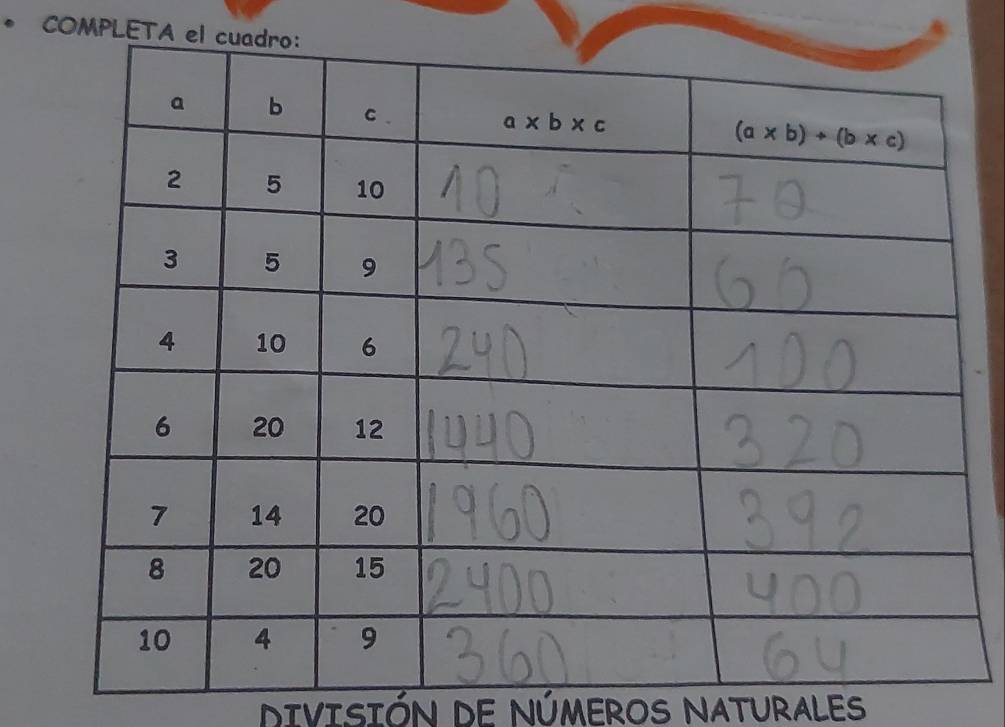 • COMPLETA el cuadro:
a b c a x b x c (a x b) + (b x c)
2 5 10 10 70
3 5 9 135 60
4 10 6 240 100
6 20 12 1440 320
7 14 20 1960 392
8 20 15 2400 400
10 4 9 360 64
DIVISIÓN DE NÚMEROS NATURALES